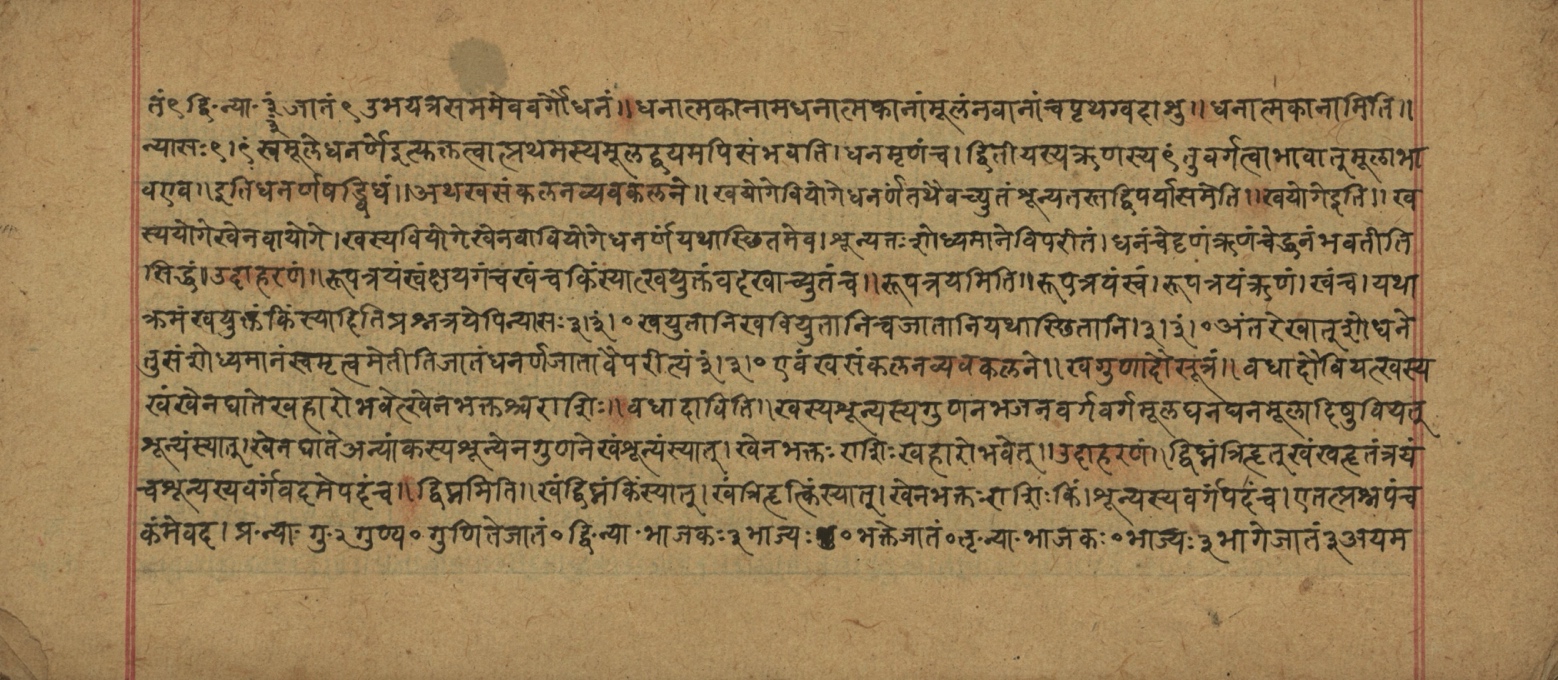 तं९ द्वि·न्या· ३ं३ं जातं ९ उभयत्रसममेववर्गौधनं॥ धनात्मकानामधनात्मकानांमूलंनवानांचपृथग्वदाशु॥ धनात्मकानामिति॥
न्यासः९।९ं स्वमूलेधनर्णेइत्युक्तत्वात्प्रथमस्यमूलद्वयमपिसंभवति। धनमृणंच। द्वितीयस्यऋणस्य९ंतुवर्गत्वाभावात्मूलाभा
वएव॥ इतिधनर्णषड्विधं॥ अथखसंकलनव्यवकलने॥ खयोगेवियोगेधनर्णंतथैवच्युतंशून्यतस्तद्विपर्यासमेति॥ खयोगेइति॥ ख
स्ययोगेखेनवायोगे। खस्यवियोगेखेनवावियोगेधनर्णंयथास्थितमेव। शून्यतःशोध्यमानेविपरीतं। धनंचेदृणंऋणंचेद्धनंभवतीति
सिद्धं। उदाहरणं॥ रूपत्रयंस्वंक्षयगंचखंचकिंस्यात्खयुक्तंवदखाच्च्युतंच॥ रूपत्रयमिति॥ रूपत्रयंस्वं। रूपत्रयंऋणं। खंच। यथा
क्रमंखयुक्तंकिंस्यादितिप्रश्नत्रयेपिन्यासः३।३ं।० खयुतानिखवियुतानिचजातानियथास्थितानि।३।३ं।०अंतरेखात्शोधने
तुसंशोध्यमानंस्वमृणत्वमेतीतिजातंधनर्णजातावैपरीत्यं ३ं।३।० एवंखसंकलनव्यवकलने॥ खगुणादौसूत्रं॥ वधादौवियत्खस्य
खंखेनघातेखहारोभवेत्खेनभक्तश्चराशिः॥ वधादाविति॥ खस्यशून्यस्यगुणनभजनवर्गवर्गमूलघनघनमूलादिषुवियत्
शून्यंस्यात्। खेनघातेअन्यांकस्यशून्येनगुणनेखंशून्यंस्यात्। खेनभक्तःराशिःखहारोभवेत्॥ उदाहरणं॥ द्विघ्नंत्रिहृत्खंखहृतंत्रयं
चशून्यस्यवर्गंवदमेपदंच॥ द्विघ्नमिति॥ खंद्विघ्नंकिंस्यात्। खंत्रिहृत्किंस्यात्। खेनभक्तःराशिःकिं। शून्यस्यवर्गपदंच। एतत्प्रश्नपंच
कंमेवद। प्र·न्या· गु·२ गुण्य० गुणितेजातं० द्वि·न्या·भाजकः३भाज्यः०भक्तेजातं०तृ·न्या·भाजकः०भाज्यः३भागेजातं३अयम